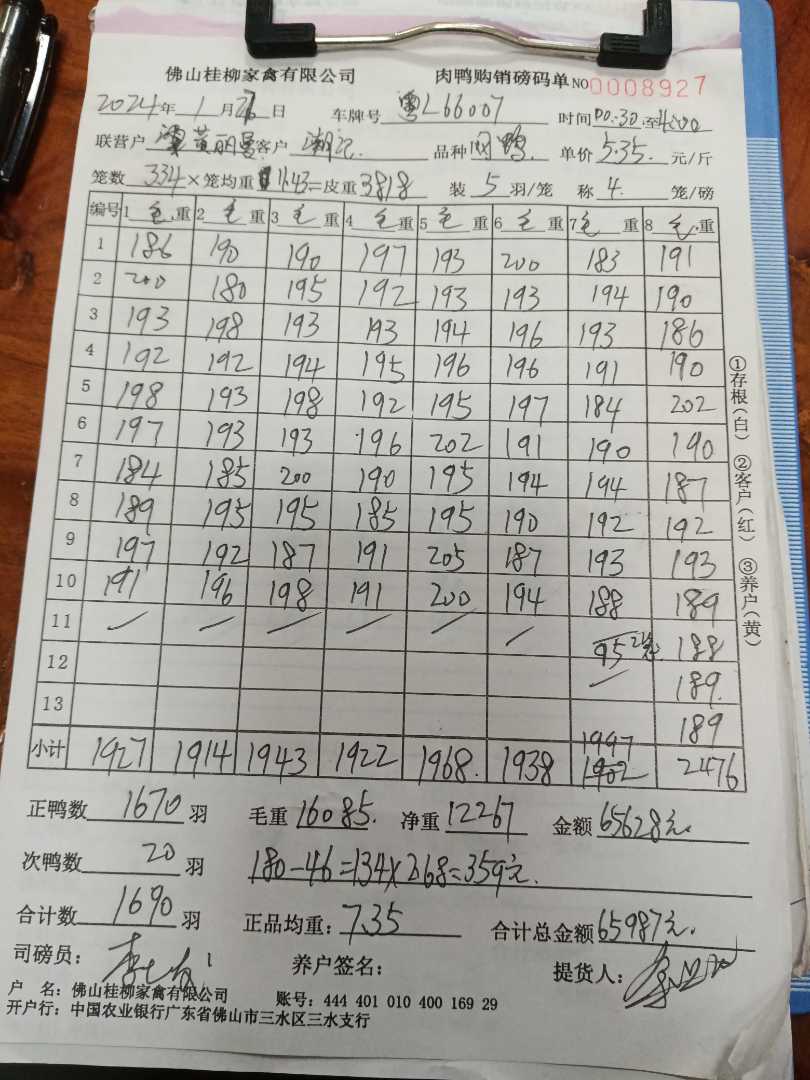 佛山桂柳家禽有限公司 肉鸭购销磅码单 NO 0008927
2024年 1月 日 车牌号 粤L66007 时间 00:30 至 4:00
联营户 黄丽 客户 潮记 品种 肉鸭 单价 5.35 元/斤
笼数 334 × 笼均重 11.43 = 皮重 3818 装 5 羽/笼 称 4 笼/磅
编号 1 毛 重 2 毛 重 3 毛 重 4 毛 重 5 毛 重 6 毛 重 7 毛 重 8 毛 重
1 186 190 190 197 193 200 183 191
2 200 180 195 192 193 193 194 190
3 193 198 193 193 194 196 193 186
4 192 192 194 195 196 196 191 190
5 198 193 198 192 195 197 184 202
6 197 193 193 196 202 191 190 190
7 184 185 200 190 195 194 194 187
8 189 195 195 185 195 190 192 192
9 197 192 187 191 205 187 193 193
10 191 196 198 191 200 194 188 189
11 / / / / / / 95 2笼 188
12 / 189
13 189
1997
小计 1927 1914 1943 1922 1968 1938 1902 2476
正鸭数 1670 羽 毛重 16085 净重 12267 金额 65628元
次鸭数 20 羽 180-46=134×2.68=359元
合计数 1690 羽 正品均重: 7.35 合计总金额 65987元
司磅员: 养户签名: 提货人:
户 名: 佛山桂柳家禽有限公司 账号: 444 401 010 400 169 29
开户行: 中国农业银行广东省佛山市三水区三水支行
①存根(白) ②客户(红) ③养户(黄)